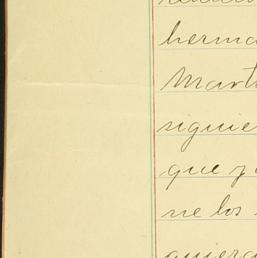 herma
Mart
siguie
que y
ne los
quiera